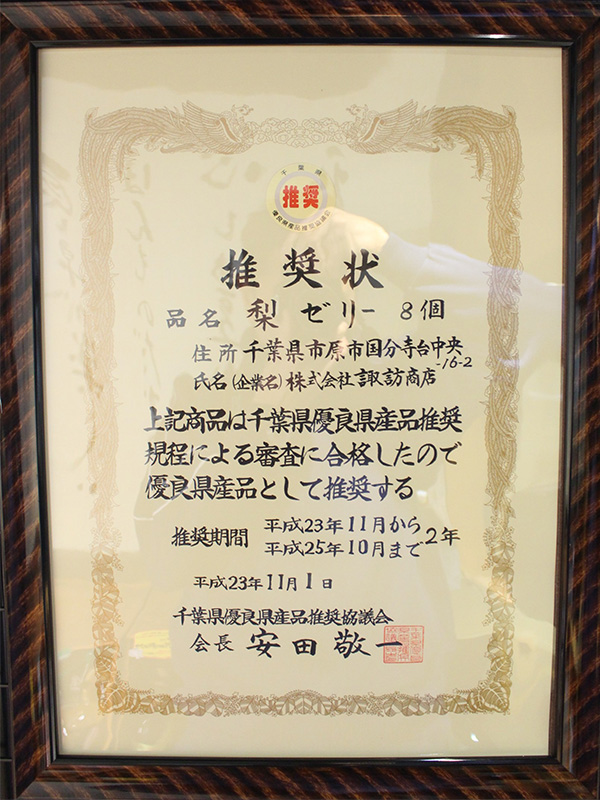 千葉県
推奨
推奨状
品名 梨ゼリー 8個
住所 千葉県市原市国分寺台中央
-16-2
氏名(企業名) 株式会社諏訪商店
上記商品は千葉県優良県産品推奨
規程による審査に合格したので
優良県産品として推奨する
推奨期間 平成23年11月から
平成25年10月まで 2年
平成23年11月1日
千葉県優良県産品推奨協議会
会長 安田敬一